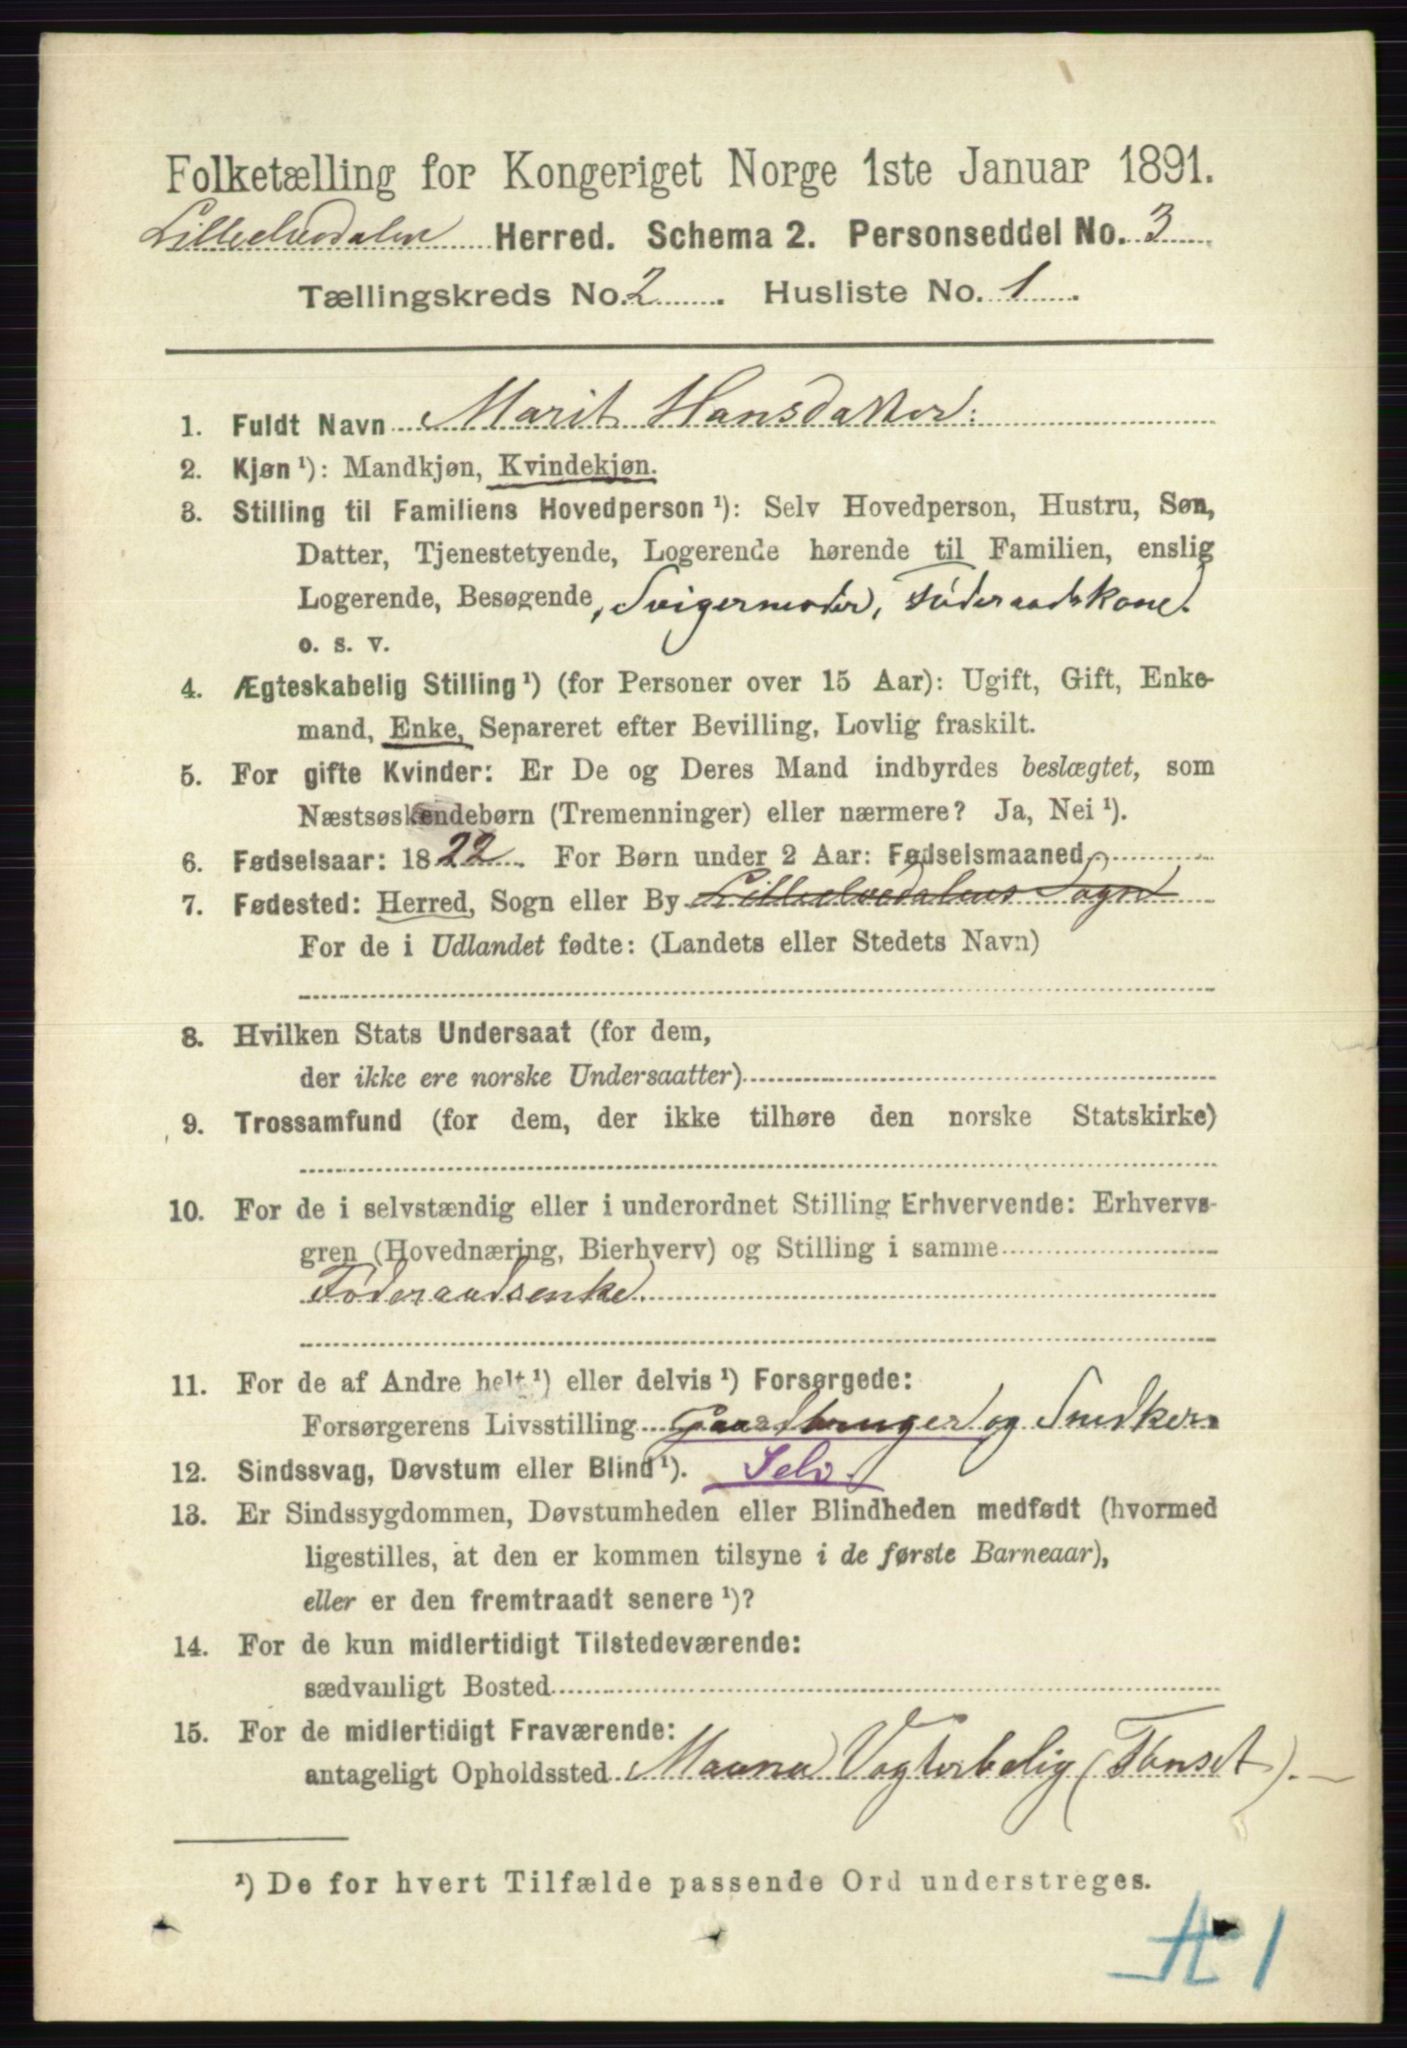 Folketælling for Kongeriget Norge 1ste Januar 1891.
Lilleelvedalen Herred. Schema 2. Personseddel No. 3
Tællingskreds No. 2. Husliste No. 1.
1. Fuldt Navn Marit Hansdatter:
2. Kjøn ¹): Mandkjøn, Kvindekjøn.
3. Stilling til Familiens Hovedperson ¹): Selv Hovedperson, Hustru, Søn,
Datter, Tjenestetyende, Logerende hørende til Familien, enslig
Logerende, Besøgende, Svigermoder, Føderaadskone.
o. s. v.
4. Ægteskabelig Stilling ¹) (for Personer over 15 Aar): Ugift, Gift, Enke-
mand, Enke, Separeret efter Bevilling, Lovlig fraskilt.
5. For gifte Kvinder: Er De og Deres Mand indbyrdes beslægtet, som
Næstsøskendebørn (Tremenninger) eller nærmere? Ja, Nei ¹).
6. Fødselsaar: 1822. For Børn under 2 Aar: Fødselsmaaned
7. Fødested: Herred, Sogn eller By Lilleelvedalens Sogn
For de i Udlandet fødte: (Landets eller Stedets Navn)
8. Hvilken Stats Undersaat (for dem,
der ikke ere norske Undersaatter)
9. Trossamfund (for dem, der ikke tilhøre den norske Statskirke)
10. For de i selvstændig eller i underordnet Stilling Erhvervende: Erhvervs-
gren (Hovednæring, Bierhverv) og Stilling i samme
Føderaadsenke.
11. For de af Andre helt ¹) eller delvis ¹) Forsørgede:
Forsørgerens Livsstilling Gaardbruger og Snedker
12. Sindssvag, Døvstum eller Blind ¹). Selv.
13. Er Sindssygdommen, Døvstumheden eller Blindheden medfødt (hvormed
ligestilles, at den er kommen tilsyne i de første Barneaar),
eller er den fremtraadt senere ¹)?
14. For de kun midlertidigt Tilstedeværende:
sædvanligt Bosted
15. For de midlertidigt Fraværende:
antageligt Opholdssted Vogterbolig (Tønset).
¹) De for hvert Tilfælde passende Ord understreges.